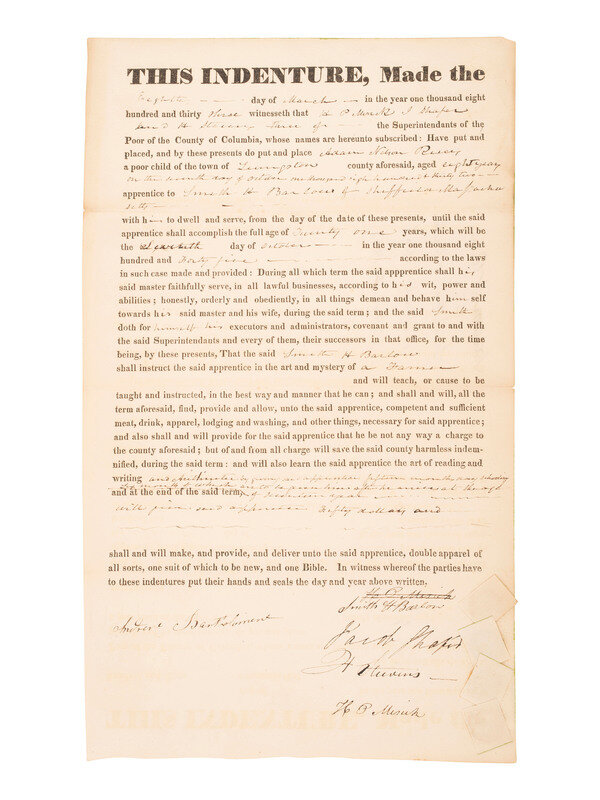 THIS INDENTURE, Made the
Eighth day of March in the year one thousand eight
hundred and thirty three witnesseth that H P Mesick J Shafer
and H Stevens the Superintendents of the
Poor of the County of Columbia, whose names are hereunto subscribed: Have put and
placed, and by these presents do put and place Adam Nelson
a poor child of the town of Livingston county aforesaid, aged eight years
on the day of October one thousand eight hundred and thirty two
apprentice to Smith H Barlow of Sheffield Massachu
setts
with him to dwell and serve, from the day of the date of these presents, until the said
apprentice shall accomplish the full age of Twenty one years, which will be
the day of October in the year one thousand eight
hundred and Forty five according to the laws
in such case made and provided: During all which term the said appprentice shall his
said master faithfully serve, in all lawful businesses, according to his wit, power and
abilities; honestly, orderly and obediently, in all things demean and behave him self
towards his said master and his wife, during the said term; and the said Smith
doth for himself his executors and administrators, covenant and grant to and with
the said Superintendents and every of them, their successors in that office, for the time
being, by these presents, That the said Smith H Barlow
shall instruct the said apprentice in the art and mystery of a Farmer
and will teach, or cause to be
taught and instructed, in the best way and manner that he can; and shall and will, all the
term aforesaid, find, provide and allow, unto the said apprentice, competent and sufficient
meat, drink, apparel, lodging and washing, and other things, necessary for said apprentice;
and also shall and will provide for the said apprentice that he be not any way a charge to
the county aforesaid; but of and from all charge will save the said county harmless indem-
nified, during the said term: and will also learn the said apprentice the art of reading and
writing and months day schooling
and at the end of the said term,
will give said apprentice Fifty dollars and
shall and will make, and provide, and deliver unto the said apprentice, double apparel of
all sorts, one suit of which to be new, and one Bible. In witness whereof the parties have
to these indentures put their hands and seals the day and year above written.
H P Mesick
Smith H Barlow
Andrew Bartholomew
Jacob Shafer
H Stevens
H P Mesick